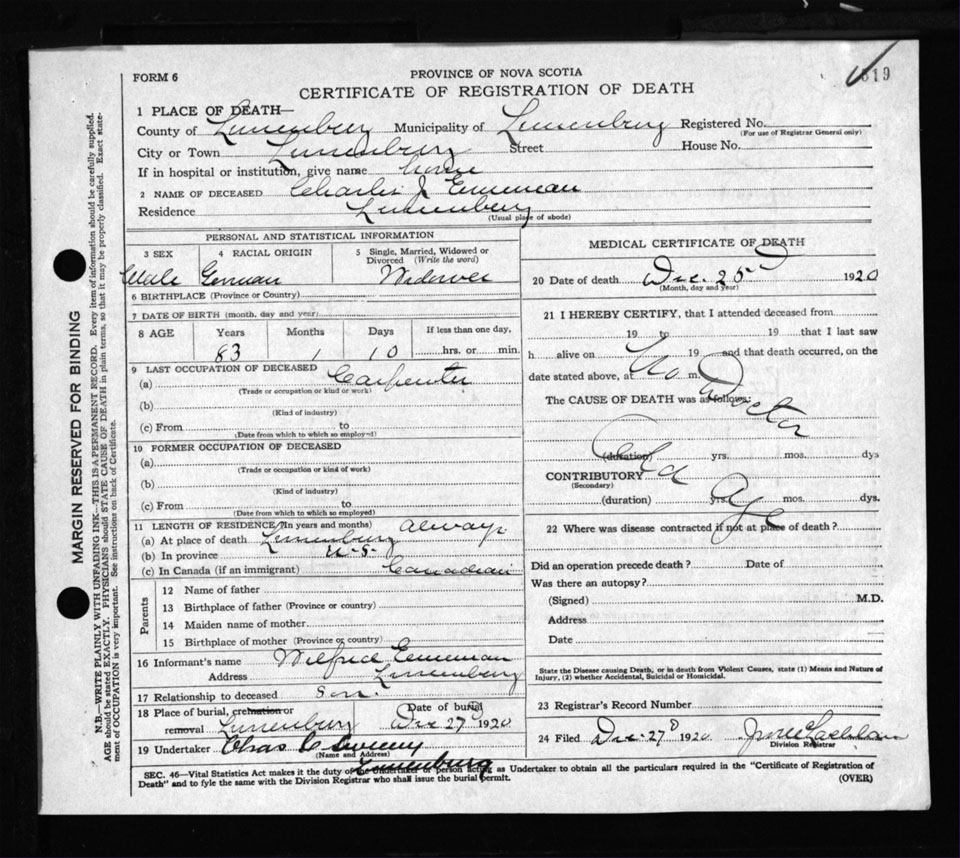 FORM 6
PROVINCE OF NOVA SCOTIA
CERTIFICATE OF REGISTRATION OF DEATH
619
1 PLACE OF DEATH—
County of Lunenburg Municipality of Lunenburg Registered No.
(For use of Registrar General only)
City or Town Lunenburg Street House No.
If in hospital or institution, give name home
2 NAME OF DECEASED Charles J
Residence Lunenburg
(Usual place of abode)
PERSONAL AND STATISTICAL INFORMATION
3 SEX 4 RACIAL ORIGIN 5 Single, Married, Widowed or Divorced (Write the word)
Male German Widower
6 BIRTHPLACE (Province or Country)
7 DATE OF BIRTH (month, day and year)
8 AGE Years Months Days If less than one day,
83 1 10 hrs. or min.
9 LAST OCCUPATION OF DECEASED
(a) Carpenter
(Trade or occupation or kind or work)
(b)
(Kind of industry)
(c) From to
(Date from which to which so employed)
10 FORMER OCCUPATION OF DECEASED
(a)
(Trade or occupation or kind of work)
(b)
(Kind of industry)
(c) From to
(Date from which to which so employed)
11 LENGTH OF RESIDENCE (In years and months) always
(a) At place of death Lunenburg
(b) In province N.S.
(c) In Canada (if an immigrant) Canadian
Parents
12 Name of father
13 Birthplace of father (Province or country)
14 Maiden name of mother
15 Birthplace of mother (Province or country)
16 Informant's name Wilfred
Address Lunenburg
17 Relationship to deceased Son.
18 Place of burial, cremation or removal Lunenburg
Date of burial Dec 27 1920
19 Undertaker Chas
(Name and Address)
Lunenburg
MEDICAL CERTIFICATE OF DEATH
20 Date of death Dec. 25 1920
(Month, day and year)
21 I HEREBY CERTIFY, that I attended deceased from
19 to 19 that I last saw
h alive on 19 and that death occurred, on the
date stated above, at m.
No Doctor
The CAUSE OF DEATH was as follows:
Old Age
(duration) yrs. mos. dys
CONTRIBUTORY
(Secondary)
(duration) yrs. mos. dys.
22 Where was disease contracted if not at place of death?
Did an operation precede death? Date of
Was there an autopsy?
(Signed) M.D.
Address
Date
State the Disease causing Death, or in death from Violent Causes, state (1) Means and Nature of
Injury, (2) whether Accidental, Suicidal or Homicidal.
23 Registrar's Record Number
24 Filed Dec 27 1920
Division Registrar
SEC. 46—Vital Statistics Act makes it the duty of the Undertaker or person acting as Undertaker to obtain all the particulars required in the "Certificate of Registration of
Death" and to fyle the same with the Division Registrar who shall issue the burial permit.
(OVER)
MARGIN RESERVED FOR BINDING
N.B.—WRITE PLAINLY WITH UNFADING INK—THIS IS A PERMANENT RECORD. Every item of information should be carefully supplied.
AGE should be stated EXACTLY. PHYSICIANS should STATE CAUSE OF DEATH in plain terms, so that it may be properly classified. Exact state-
ment of OCCUPATION is very important. See instructions on back of Certificate.